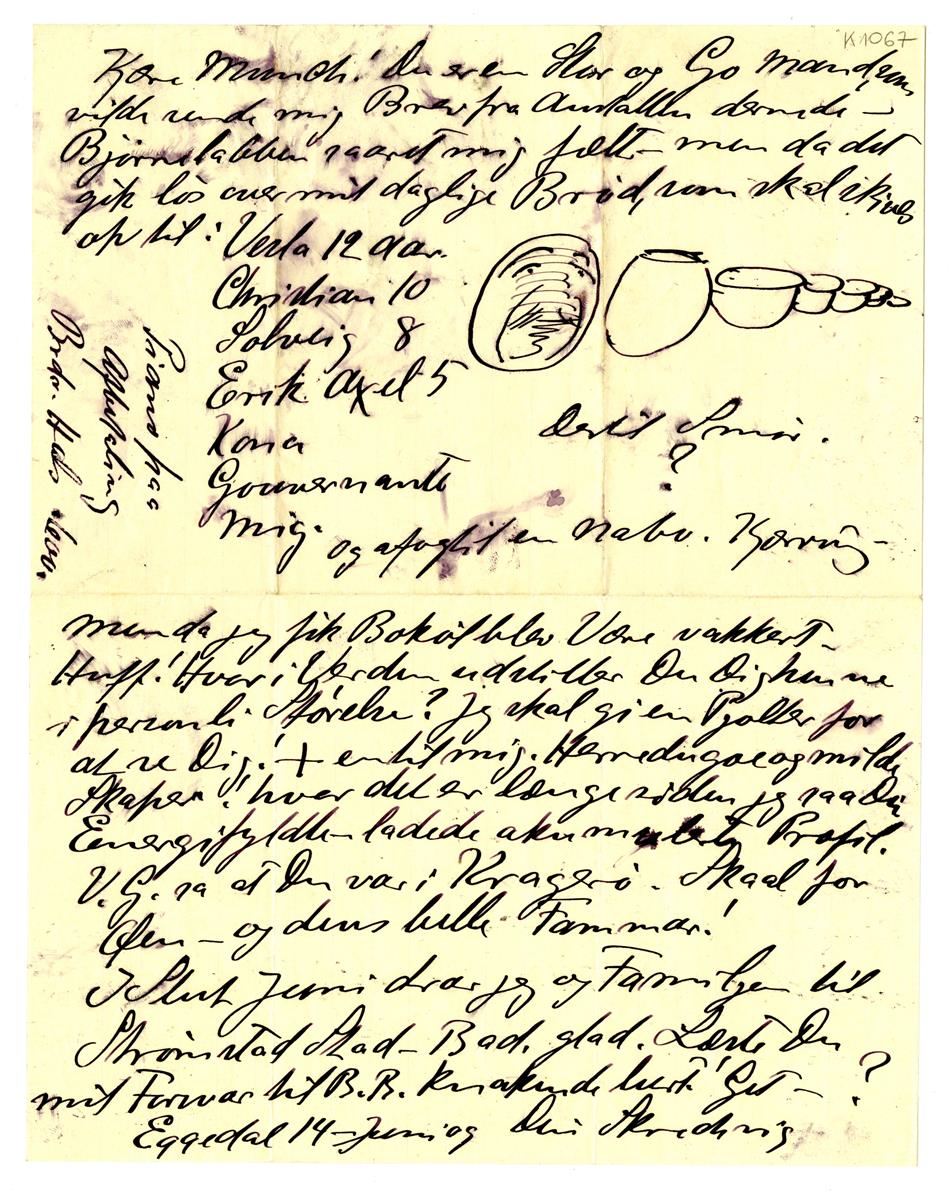 K1067
Kjære Munch! Du er en Stor og Go Mand som
vilde sende mig Brev fra Anstalten dernede –
Bjørnelabben saaret mig fælt – men da det
gik lös over mit daglige Bröd, som skal skives
op til: Vesla 12 aar.
Christian 10
Solveig 8
Erik Axel 5
Kona
Gouvernante
Mig.
og en Nabo. Kjærring –
Dertil Smör.
?
Piano paa
Afbetaling
men da jeg fik Boköl blev Være vakkert –
Huff! Hvor i Verden udstiller Du Dig henne
i personli Störelse? Jeg skal gi en Pjolter for
at se Dig! + en til mig. Herredugoe og milde
Skaper! hvor det er længe siden jeg saa Din
Energifyldte – ladede akumulerte Profil.
V.G. sa at Du var i Kragerö. Skaal for
Öen – og dens lille Fammar!
I Slut Juni drar jeg og Familjen til
Strömstad Stad – Bad, glad. Læste Du
mit Forsvar til B.B. Knakende Gut – ?
Eggedal 14 – Juni 09 Din Skredsvig